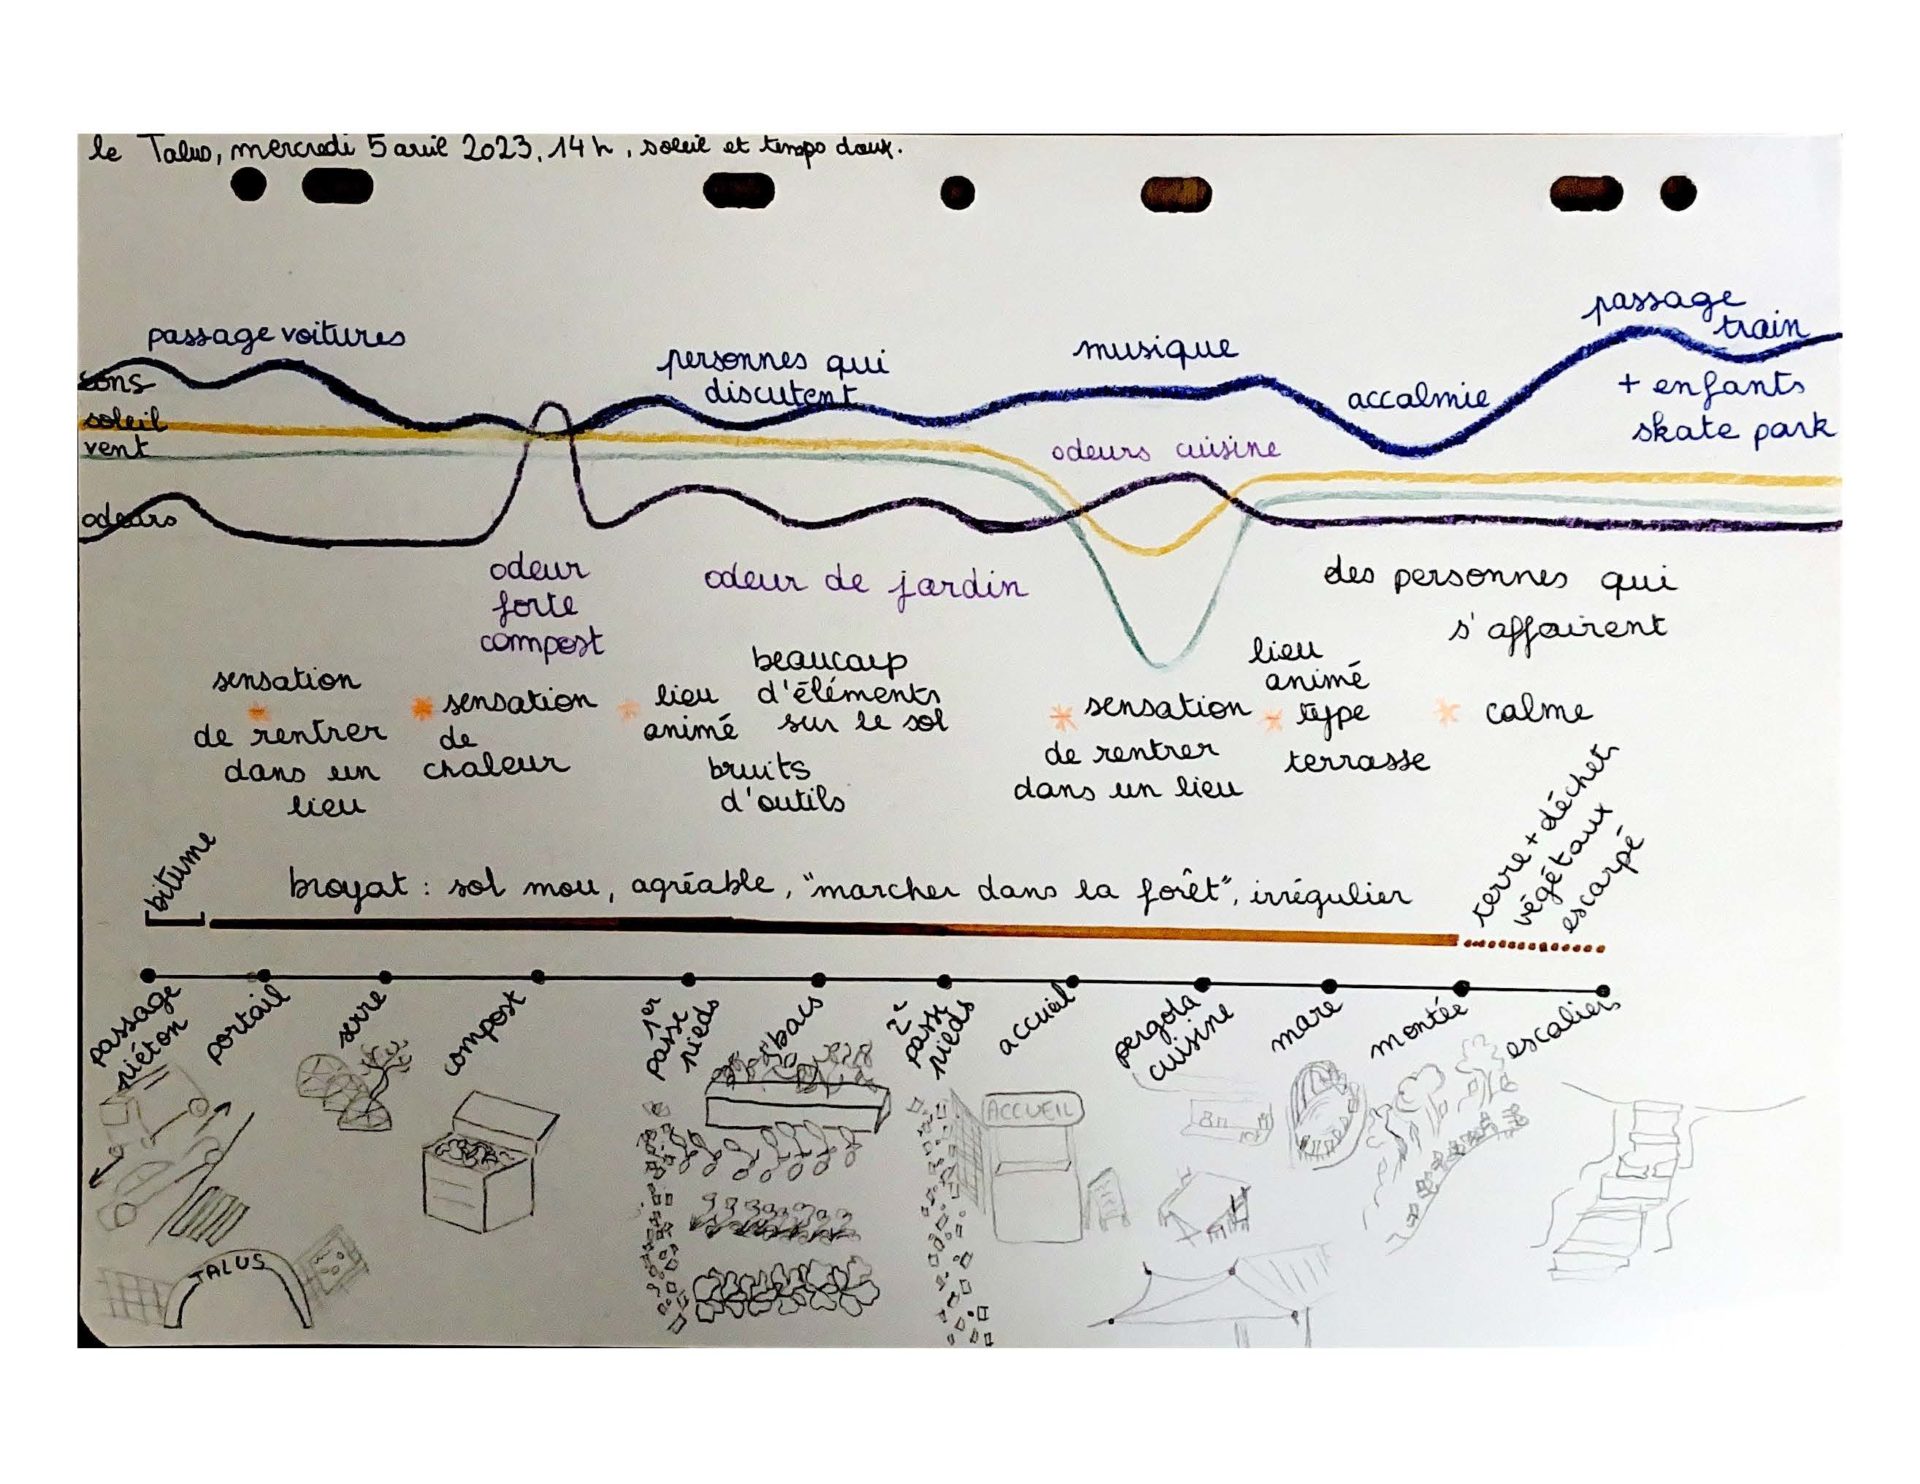 le Talus, mercredi 5 avril 2023, 14h, soleil et temps doux.
passage voitures
personnes qui
discutent
musique
accalmie
passage
train
+ enfants
skate park
sons
soleil
vent
odeurs
odeurs cuisine
odeur
forte
compost
odeur de jardin
des personnes qui
s'affairent
sensation
de rentrer
dans un
lieu
sensation
de
chaleur
lieu
animé
beaucoup
d'éléments
sur le sol
bruits
d'outils
sensation
de rentrer
dans un lieu
lieu
animé
type
terrasse
calme
bitume
broyat : sol mou, agréable, "marcher dans la forêt", irrégulier
terre + déchet
végétaux
escarpé
passage
piéton
portail
serre
compost
1er
passe
pieds
bacs
2e
passe
pieds
accueil
pergola
cuisine
mare
montée
escaliers
TALUS
ACCUEIL